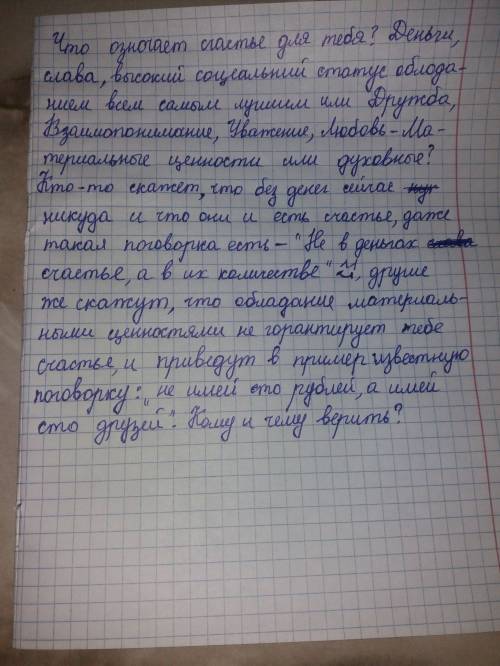 Что означает счастье для тебя? Деньги,
слава, высокий соцеальний статус облода-
нием всем самым лучшим или Дружба,
Взаимопонимание, Уважение, Любовь-Ма-
териальные ценности или духовные?
Кто-то скажет, что без денег сейчас
никуда и что они и есть счастье, даже
такая поговорка есть - "Не в деньгах
счастье, а в их количестве", другие
же скажут, что обладание материаль-
ными ценностями не горантирует тебе
счастье, и приведут в пример известную
поговорку: "не имей сто рублей, а имей
сто друзей". Кому и чему верить?